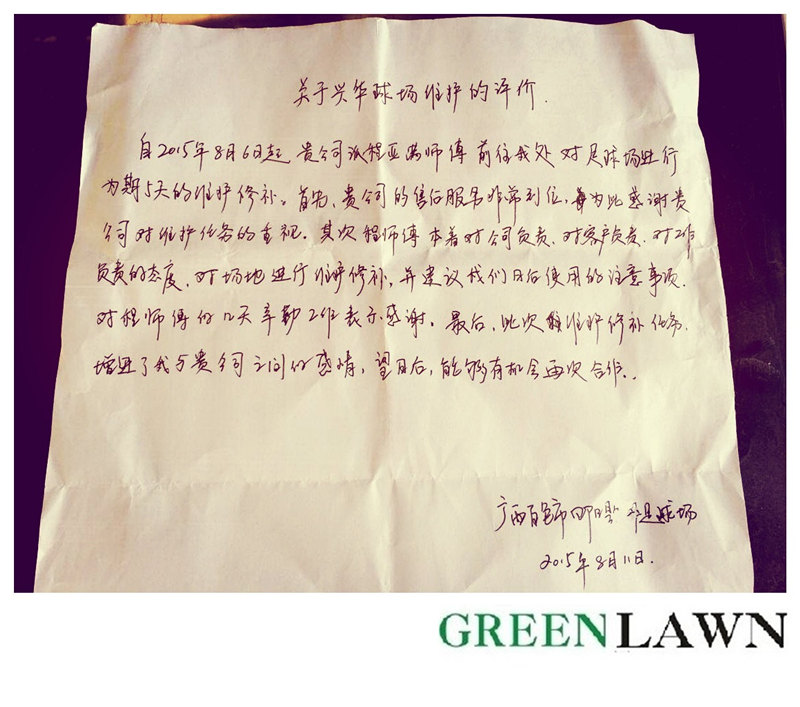 关于兴华球场维护的评价.
自2015年8月6日起 贵公司派程亚师傅前往我处对足球场进行
为期5天的维护修补。首先、贵公司的售后服务非常到位,为此感谢贵
公司对维护任务的重视。其次程师傅本着对公司负责、对客户负责、对工作
负责的态度、对场地进行维护修补,并建议我们日后使用的注意事项.
对程师傅的几天辛勤工作表示感谢。最后,此次维护修补任务,
增进了我与贵公司之间的感情,望日后,能够有机会再次合作..
广西百色市足球场
2015年8月11日.
GREENLAWN